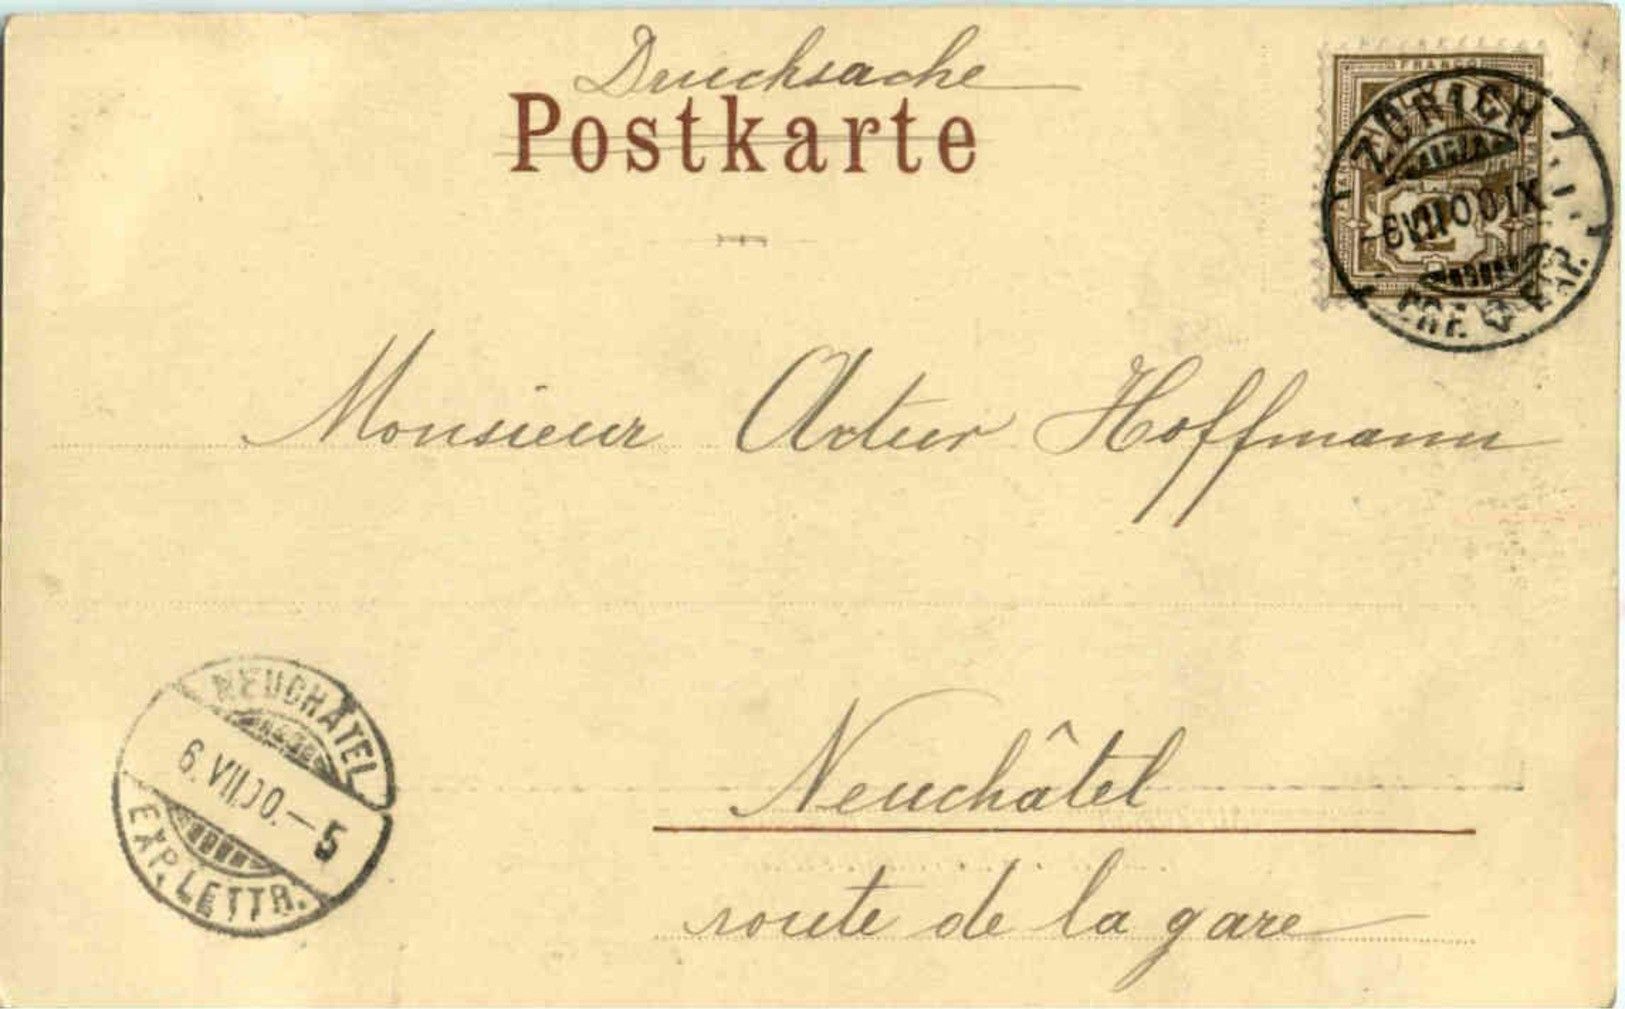 Drucksache
Postkarte
FRANCO
ZÜRICH
-6 VII 00 IX
BRF. EXP.
2
Monsieur Artur Hoffmann
Neuchâtel
route de la gare
NEUCHÂTEL
6. VII. 00. — 5
EXP. LETTR.